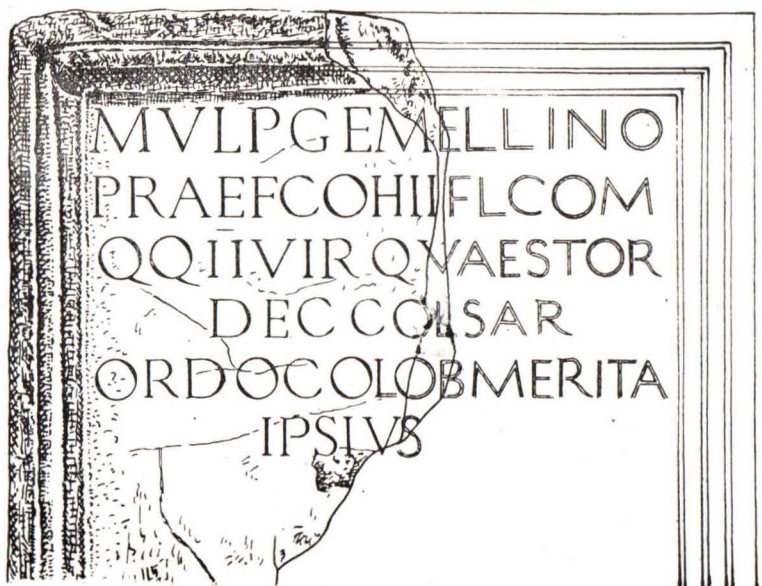 MVLPGEMELLINO
PRAEFCOHIIFLCOM
QQIIVIRQVAESTOR
DECCOLSAR
ORDOCOLOBMERITA
IPSIVS